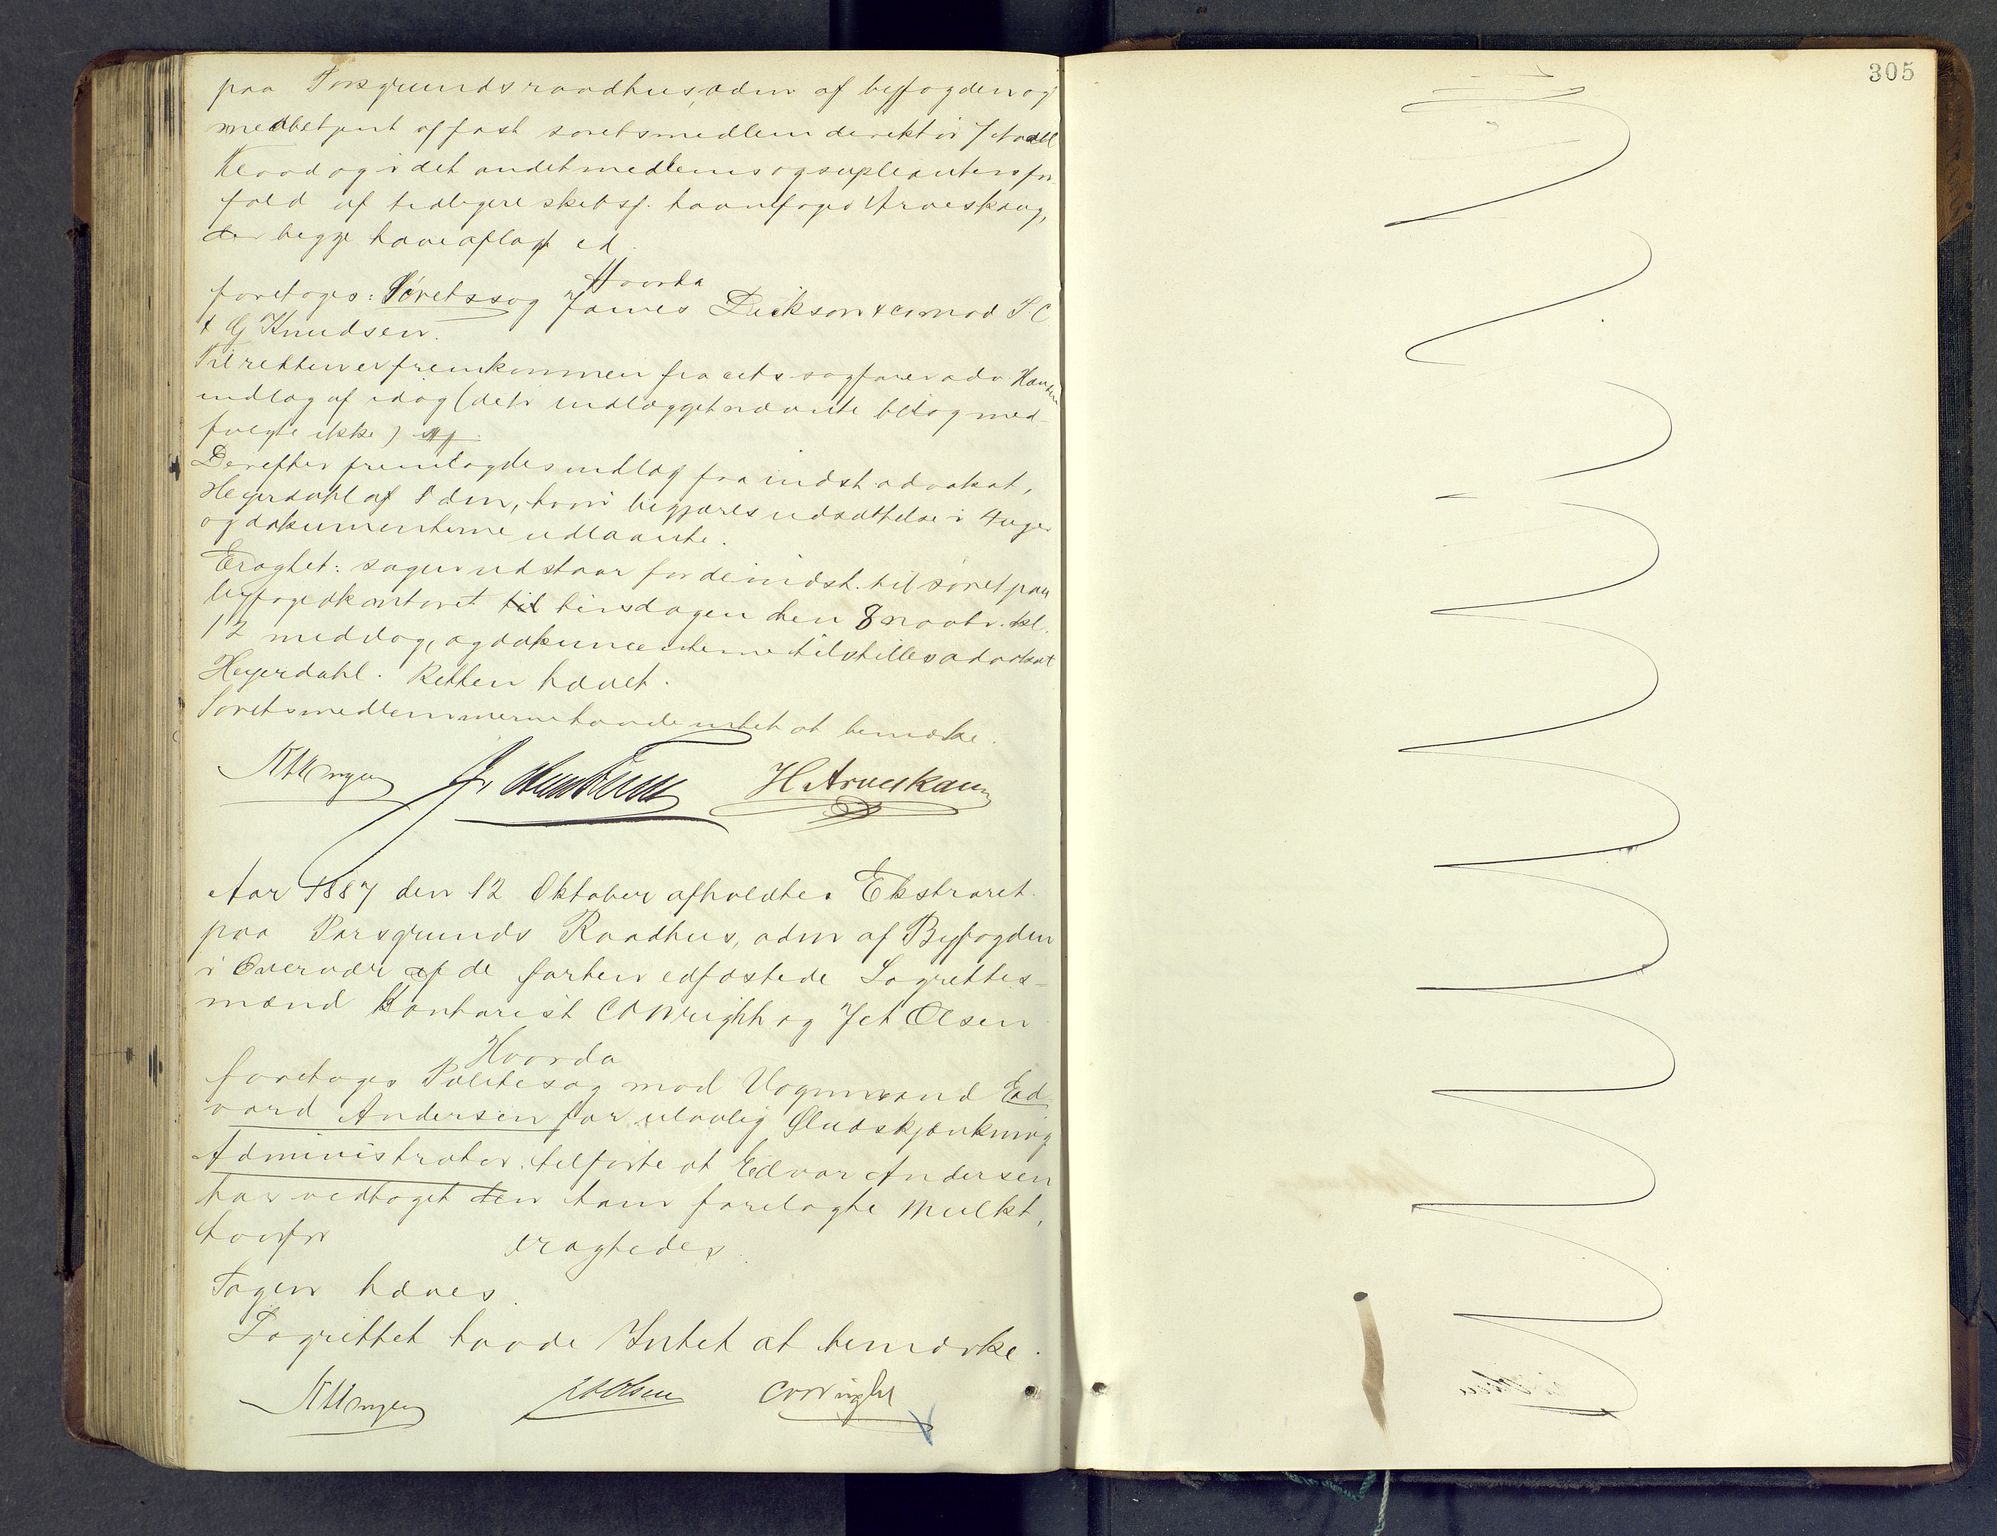 paa Porsgrunds raadhus, adm af byfogden og
medbetjent af fast søretsmedlem direktør
og i det andet medlems og supleanters for-
fald af tidligere skibsf. havnefoged Arveskoug,
der begge have aflagt ed.
Hvorda
foretoges: Søretssag James Dickson & co mod J C
& G Knudsen.
Til retten er fremkommen fra cits sagfører adv. Hansteen
indlæg af idag (det i indlægget nævnte bilag med-
fulgte ikke)
Derefter fremlagdes indlæg fra indst advokat
Heyerdahl af dm, hvori begjæres udsættelse i 4 uger
og dokumenterne udlaante.
Eragtet: sagen udstaar for de indst. til søret paa
byfogedkontoret til tirsdagen den 8 novbr. kl.
12 middag, og dokumenterne tilstilles advokat
Heyerdahl. Retten hævet.
Søretsmedlemmerne havde intet at bemærke.
H Arveskoug
Aar 1887 den 12 Oktober afholdtes Ekstraret
paa Porsgrunds Raadhus, adm af Byfogden
i Overvær af de forhen edfæstede Lagrettes-
mænd Kontorist C A Wright og Olsen
Hvorda
foretoges Politisag mod Vognmand Ed-
vard Andersen for ulovlig Øludskjænkning
Administrator tilførte at Edvar Andersen
har vedtaget den ham forelagte Mulkt,
hvorfor eragtedes
Sagen hæves.
Lagrettet havde Intet at bemærke.
Olsen C A Wright
305